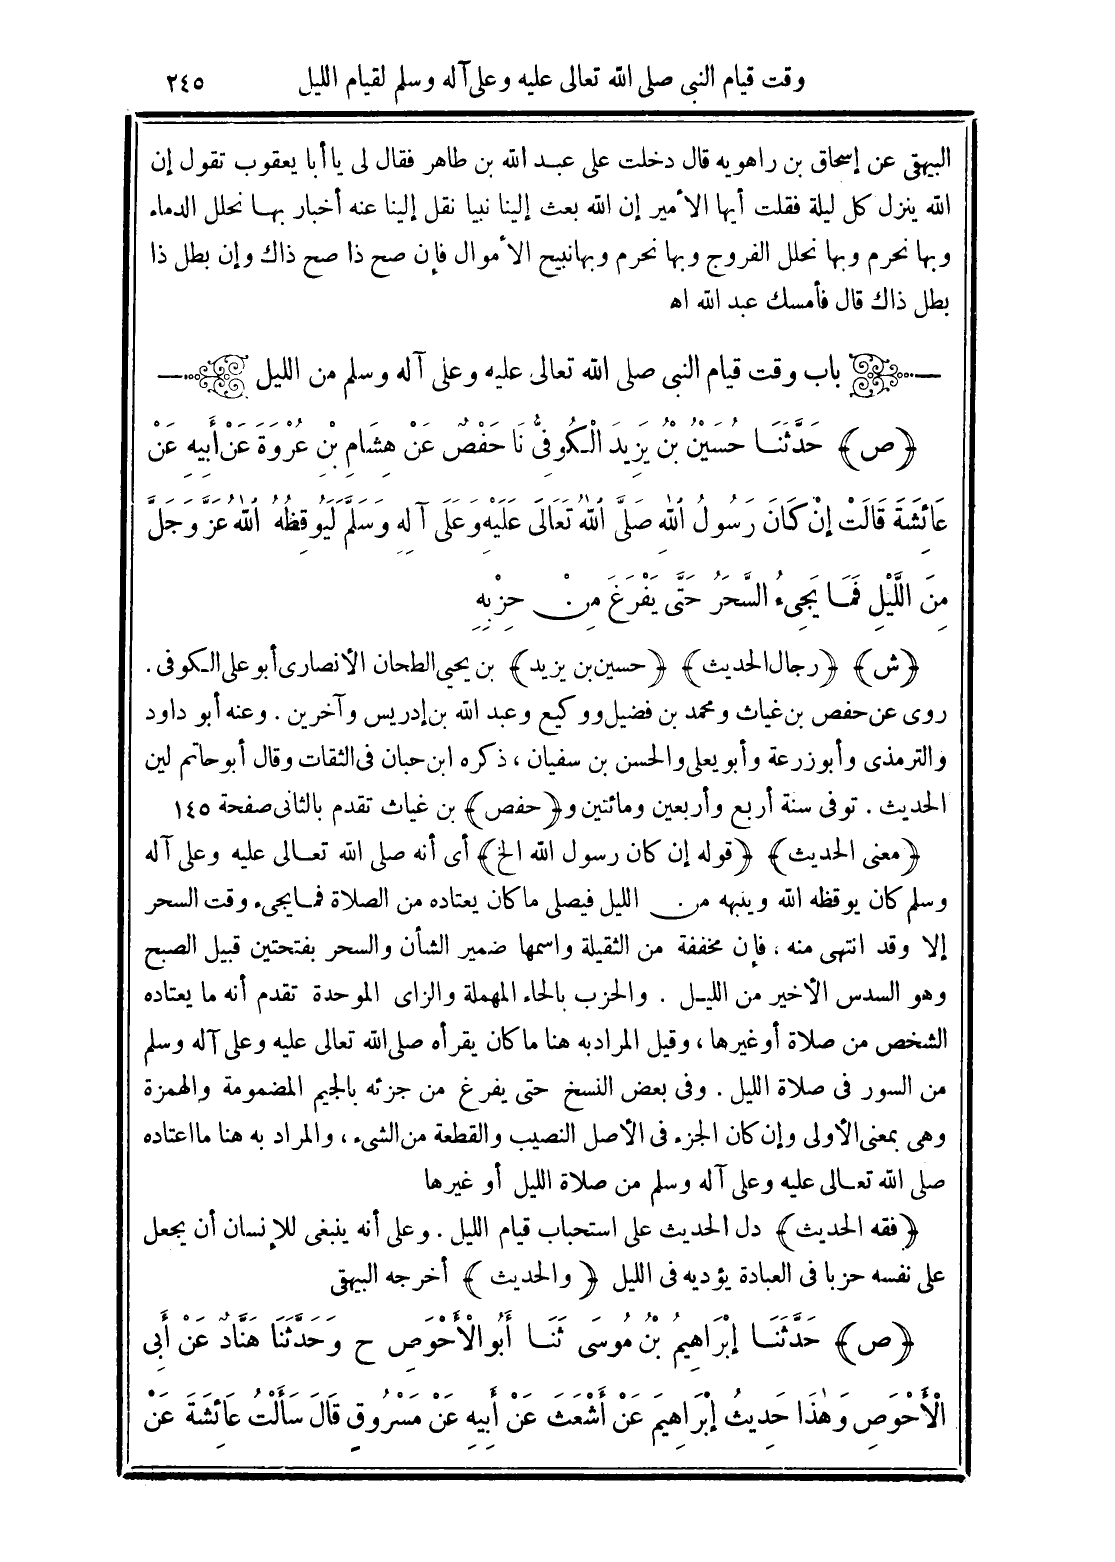 وقت قيام النبى صلى الله تعالى عليه وعلى آله وسلم لقيام الليل ٢٤٥
البيهقى عن إسحاق بن راهويه قال دخلت على عبد الله بن طاهر فقال لى يا أبا يعقوب تقول إن
الله ينزل كل ليلة فقلت أيها الأمير إن الله بعث إلينا نبيا نقل إلينا عنه أخبار بها نحلل الدماء
وبها نحرم وبها نحلل الفروج وبها نحرم وبها نبيح الأموال فإن صح ذا صح ذاك وإن بطل ذا
بطل ذاك قال فأمسك عبد الله اه
باب وقت قيام النبى صلى الله تعالى عليه وعلى آله وسلم من الليل
﴿ص﴾ حَدَّثَنَا حُسَيْنُ بْنُ يَزِيدَ الْكُوفِىُّ نَا حَفْصٌ عَنْ هِشَامِ بْنِ عُرْوَةَ عَنْ أَبِيهِ عَنْ
عَائِشَةَ قَالَتْ إِنْ كَانَ رَسُولُ اللهِ صَلَّى اللهُ تَعَالَى عَلَيْهِ وَعَلَى آلِهِ وَسَلَّمَ لَيُوقِظُهُ اللهُ عَزَّ وَجَلَّ
مِنَ اللَّيْلِ فَمَا يَجِىءُ السَّحَرُ حَتَّى يَفْرَغَ مِنْ حِزْبِهِ
﴿ش﴾ ﴿رجال الحديث﴾ ﴿حسين بن يزيد﴾ بن يحيى الطحان الأنصارى أبو على الكوفى.
روى عن حفص بن غياث ومحمد بن فضيل ووكيع وعبد الله بن إدريس وآخرين. وعنه أبو داود
والترمذى وأبو زرعة وأبو يعلى والحسن بن سفيان، ذكره ابن حبان فى الثقات وقال أبو حاتم لين
الحديث. توفى سنة أربع وأربعين ومائتين و﴿حفص﴾ بن غياث تقدم بالثانى صفحة ١٤٥
﴿معنى الحديث﴾ ﴿قوله إن كان رسول الله الخ﴾ أى أنه صلى الله تعالى عليه وعلى آله
وسلم كان يوقظه الله وينبهه من الليل فيصلى ما كان يعتاده من الصلاة فما يجىء وقت السحر
إلا وقد انتهى منه، فإن مخففة من الثقيلة واسمها ضمير الشأن والسحر بفتحتين قبيل الصبح
وهو السدس الأخير من الليل. والحزب بالحاء المهملة والزاى الموحدة تقدم أنه ما يعتاده
الشخص من صلاة أو غيرها، وقيل المراد به هنا ما كان يقرأه صلى الله تعالى عليه وعلى آله وسلم
من السور فى صلاة الليل. وفى بعض النسخ حتى يفرغ من جزئه بالجيم المضمومة والهمزة
وهى بمعنى الأولى وإن كان الجزء فى الأصل النصيب والقطعة من الشىء، والمراد به هنا ما اعتاده
صلى الله تعالى عليه وعلى آله وسلم من صلاة الليل أو غيرها
﴿فقه الحديث﴾ دل الحديث على استحباب قيام الليل. وعلى أنه ينبغى للإنسان أن يجعل
على نفسه حزبا فى العبادة يؤديه فى الليل ﴿والحديث﴾ أخرجه البيهقى
﴿ص﴾ حَدَّثَنَا إِبْرَاهِيمُ بْنُ مُوسَى ثَنَا أَبُو الْأَحْوَصِ ح وَحَدَّثَنَا هَنَّادٌ عَنْ أَبِى
الْأَحْوَصِ وَهٰذَا حَدِيثُ إِبْرَاهِيمَ عَنْ أَشْعَثَ عَنْ أَبِيهِ عَنْ مَسْرُوقٍ قَالَ سَأَلْتُ عَائِشَةَ عَنْ